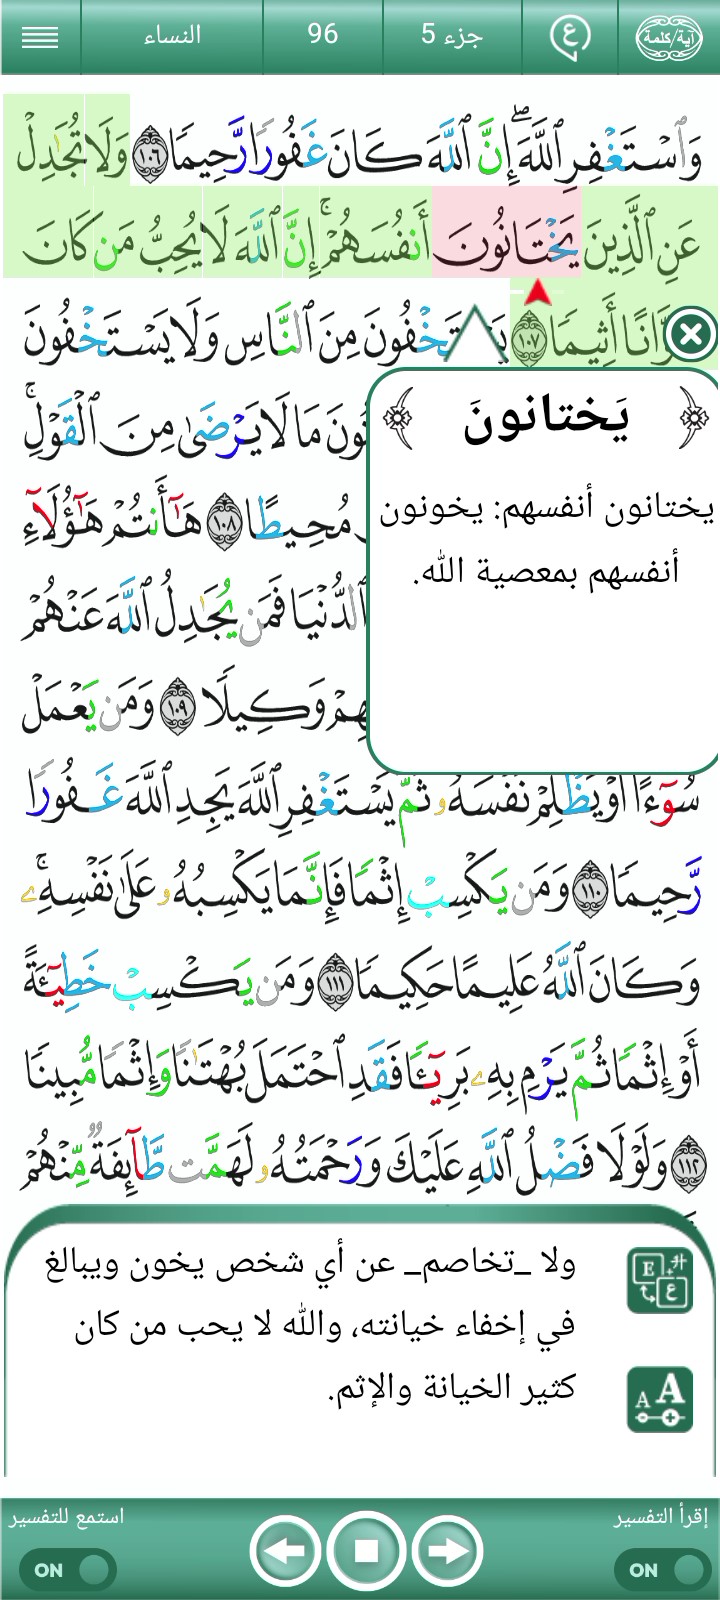 آية/كلمة
ع
جزء 5
96
النساء
وَٱسْتَغْفِرِ ٱللَّهَ ۖ إِنَّ ٱللَّهَ كَانَ غَفُورًا رَّحِيمًا ١٠٦ وَلَا تُجَٰدِلْ
عَنِ ٱلَّذِينَ يَخْتَانُونَ أَنفُسَهُمْ ۚ إِنَّ ٱللَّهَ لَا يُحِبُّ مَن كَانَ
أَثِيمًا ١٠٧ مِنَ ٱلنَّاسِ وَلَا يَسْتَخْفُونَ
مَا لَا يَرْضَىٰ مِنَ ٱلْقَوْلِ ۚ
مُحِيطًا ١٠٨ هَٰٓأَنتُمْ هَٰٓؤُلَآءِ
ٱلدُّنْيَا فَمَن يُجَٰدِلُ ٱللَّهَ عَنْهُمْ
وَكِيلًا ١٠٩ وَمَن يَعْمَلْ
سُوٓءًا أَوْ يَظْلِمْ نَفْسَهُۥ ثُمَّ يَسْتَغْفِرِ ٱللَّهَ يَجِدِ ٱللَّهَ غَفُورًا
رَّحِيمًا ١١٠ وَمَن يَكْسِبْ إِثْمًا فَإِنَّمَا يَكْسِبُهُۥ عَلَىٰ نَفْسِهِۦ ۚ
وَكَانَ ٱللَّهُ عَلِيمًا حَكِيمًا ١١١ وَمَن يَكْسِبْ خَطِيٓـَٔةً
أَوْ إِثْمًا ثُمَّ يَرْمِ بِهِۦ بَرِيٓـًٔا فَقَدِ ٱحْتَمَلَ بُهْتَٰنًا وَإِثْمًا مُّبِينًا
١١٢ وَلَوْلَا فَضْلُ ٱللَّهِ عَلَيْكَ وَرَحْمَتُهُۥ لَهَمَّت طَّآئِفَةٌ مِّنْهُمْ
﴿ يَختانونَ ﴾
يختانون أنفسهم: يخونون
أنفسهم بمعصية الله.
ولا _تخاصم_ عن أي شخص يخون ويبالغ
في إخفاء خيانته، والله لا يحب من كان
كثير الخيانة والإثم.
E ع
A A
إقرأ التفسير
ON
استمع للتفسير
ON